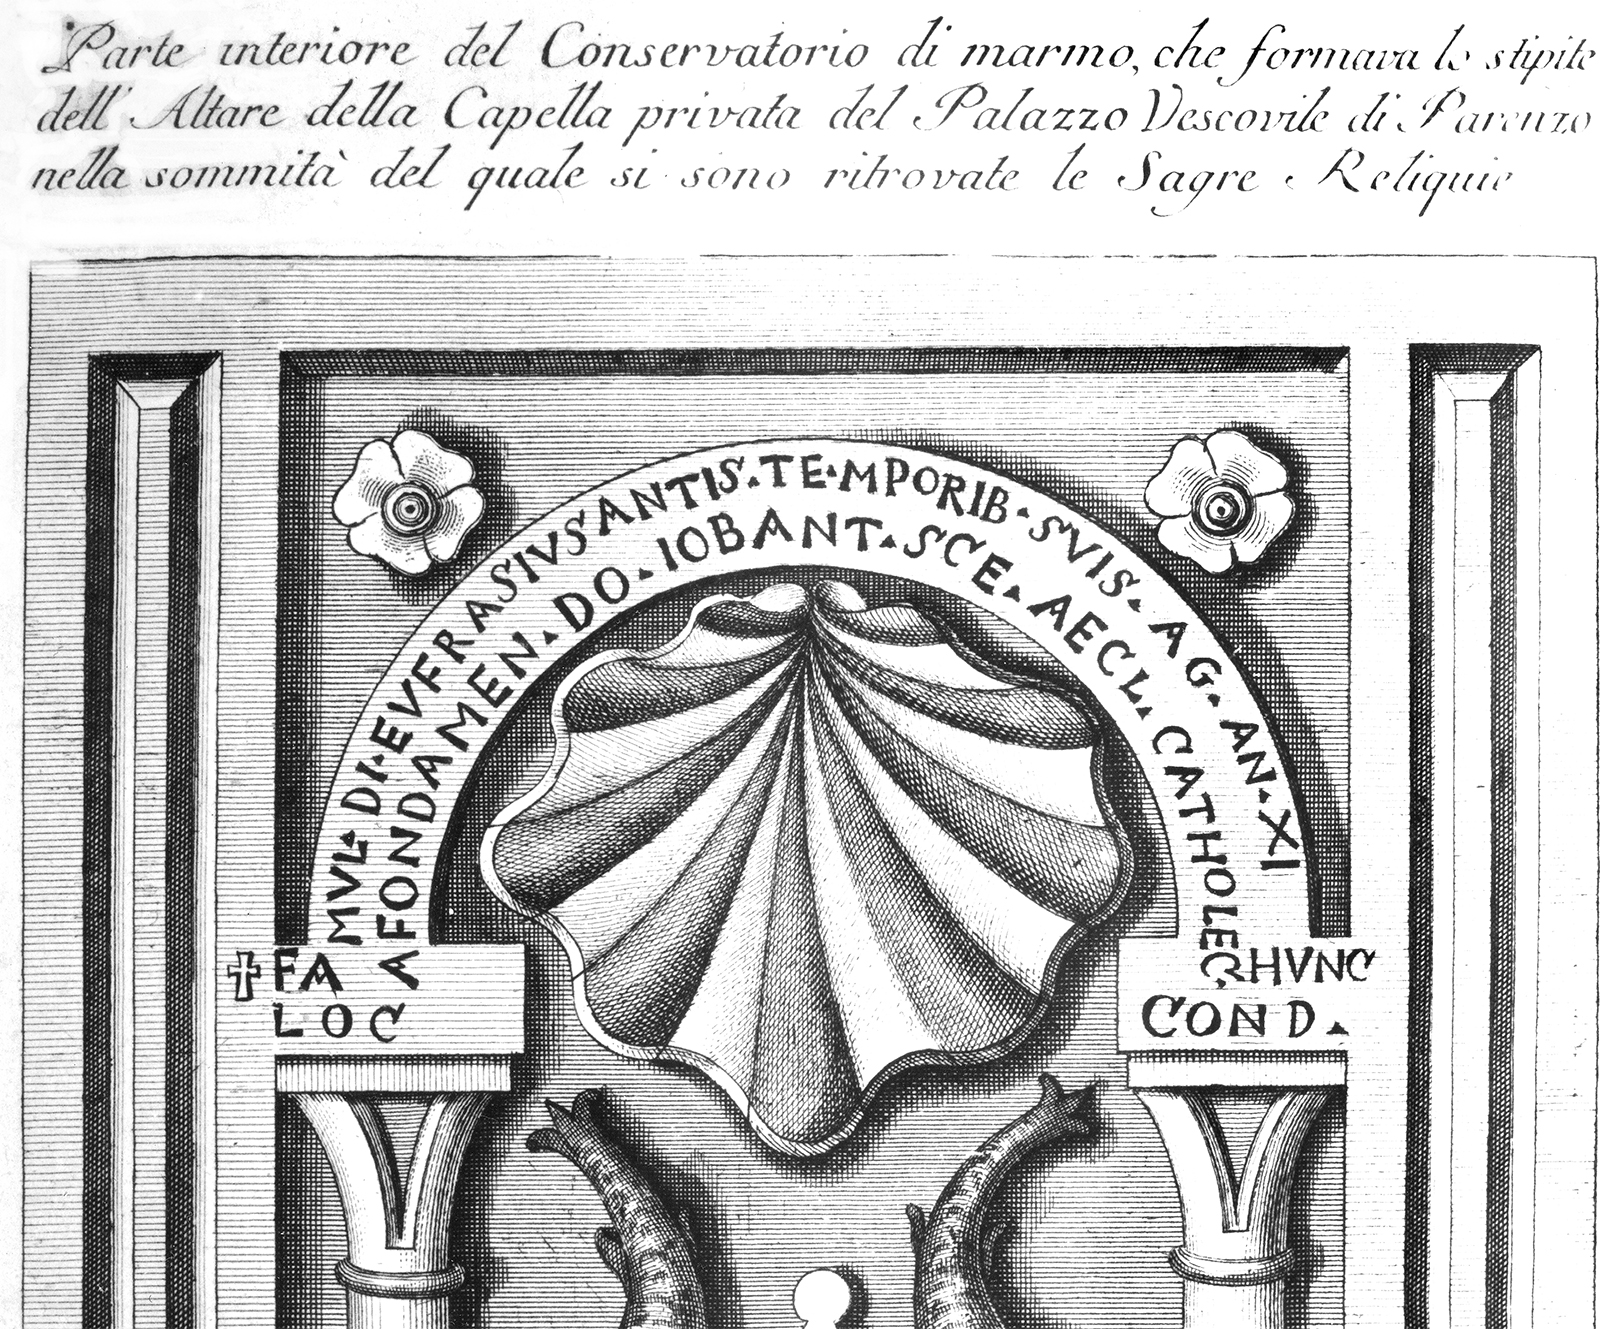 Parte interiore del Conservatorio di marmo, che formava lo stipite
dell' Altare della Capella privata del Palazzo Vescovile di Parenzo
nella sommità del quale si sono ritrovate le Sagre Reliquie
✝ FAMVL. DI. EVFRASIVS ANTIS. TE.MPORIB. SVIS. AG. AN. XI HVNC
LOC A FONDAMEN. DO. IOBANT. SCE. AECL. CATHOLEC COND.